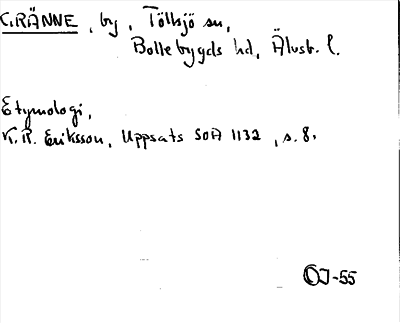 GRÄNNE, by, Töllsjö sn,
Bollebygds hd, Älvsb. l.
Etymologi,
K. R. Eriksson, Uppsats SOA 1132, s. 8.
OJ-55